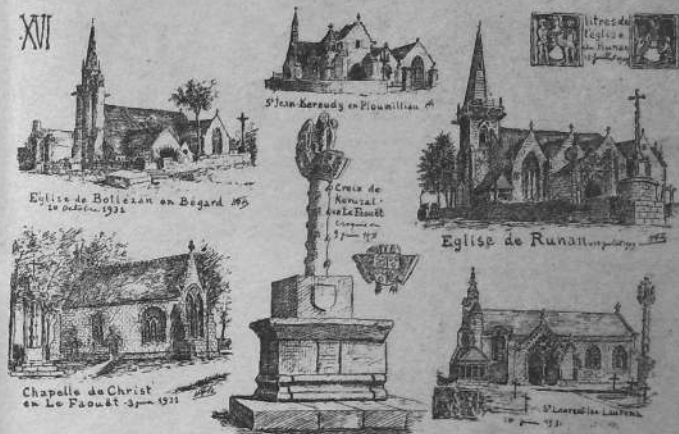 XVI
St Jean-Kereudy en Ploumilliau
litres de
l'église
de Runan
Eglise de Botlézan en Bégard
20 Octobre 1932
Croix de
en Le Faouët
Croquis en
9 juin
Eglise de Runan
Chapelle de Christ
en Le Faouët - 3 juin 1931
St Laurent
juin 1931